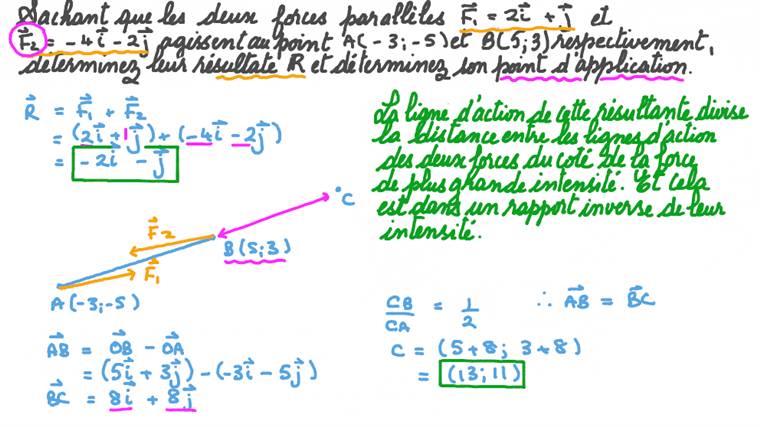 Sachant que les deux forces parallèles F⃗₁ = 2i⃗ + j⃗ et
F⃗₂ = -4i⃗ - 2j⃗ agissent au point A(-3;-5) et B(5;3) respectivement,
déterminez leur résultate R et déterminez son point d'application.
R⃗ = F⃗₁ + F⃗₂
= (2i⃗ + 1j⃗) + (-4i⃗ - 2j⃗)
= -2i⃗ - j⃗
La ligne d'action de cette résultante divise
la distance entre les lignes d'action
des deux forces du coté de la force
de plus grande intensité. Et cela
est dans un rapport inverse de leur
intensité.
C
F⃗₂
B(5;3)
F⃗₁
A(-3;-5)
AB⃗ = OB⃗ - OA⃗
= (5i⃗ + 3j⃗) - (-3i⃗ - 5j⃗)
BC⃗ = 8i⃗ + 8j⃗
CB/CA = 1/2 ∴ AB⃗ = BC⃗
C = (5+8; 3+8)
= (13;11)